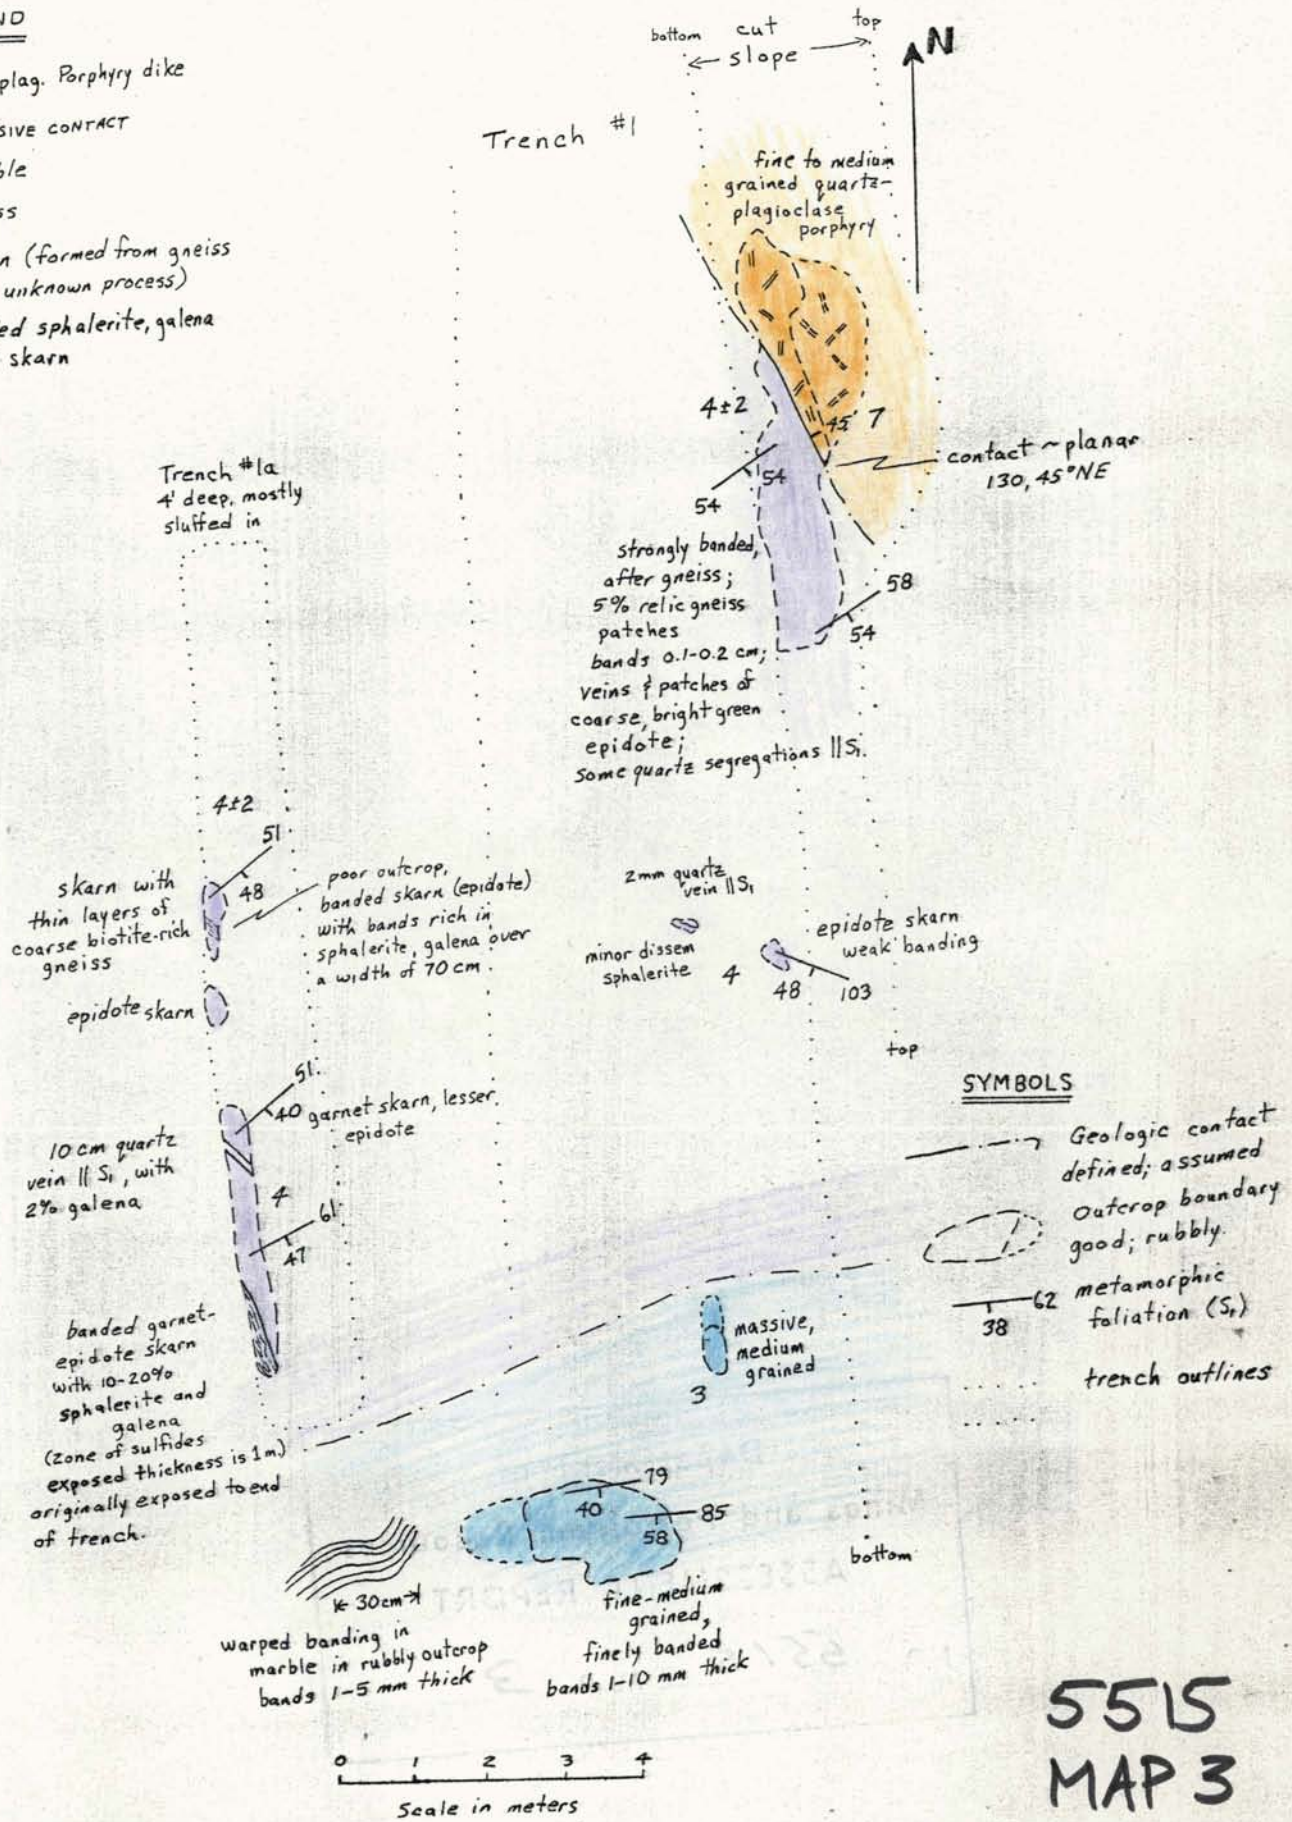 ND
plag. Porphyry dike
SIVE CONTACT
ble
ss
n (formed from gneiss
unknown process)
ed sphalerite, galena
skarn
bottom cut top
slope
N
Trench #1
fine to medium
grained quartz-
plagioclase
porphyry
4±2
45 7
contact ~ planar
130, 45°NE
54
54
strongly banded,
after gneiss;
5% relic gneiss
patches
bands 0.1-0.2 cm;
veins & patches of
coarse, bright green
epidote;
some quartz segregations ||S₁.
58
54
Trench #1a
4' deep, mostly
sluffed in
4±2
51
48
skarn with
thin layers of
coarse biotite-rich
gneiss
poor outcrop,
banded skarn (epidote)
with bands rich in
sphalerite, galena over
a width of 70 cm.
epidote skarn
2mm quartz
vein ||S₁
minor dissem
sphalerite
4
epidote skarn
weak banding
48 103
top
51
40 garnet skarn, lesser
epidote
10 cm quartz
vein || S₁, with
2% galena
4
61
47
banded garnet-
epidote skarn
with 10-20%
sphalerite and
galena
(zone of sulfides
exposed thickness is 1m.)
originally exposed to end
of trench.
massive,
medium
grained
3
79
40
85
58
bottom
30cm
warped banding in
marble in rubbly outcrop
bands 1-5 mm thick
fine-medium
grained,
finely banded
bands 1-10 mm thick
SYMBOLS
Geologic contact
defined; assumed
Outcrop boundary
good; rubbly.
62 metamorphic
38 foliation (S₁)
trench outlines
ASSESSMENT REPORT
0 1 2 3 4
Scale in meters
5515
MAP 3